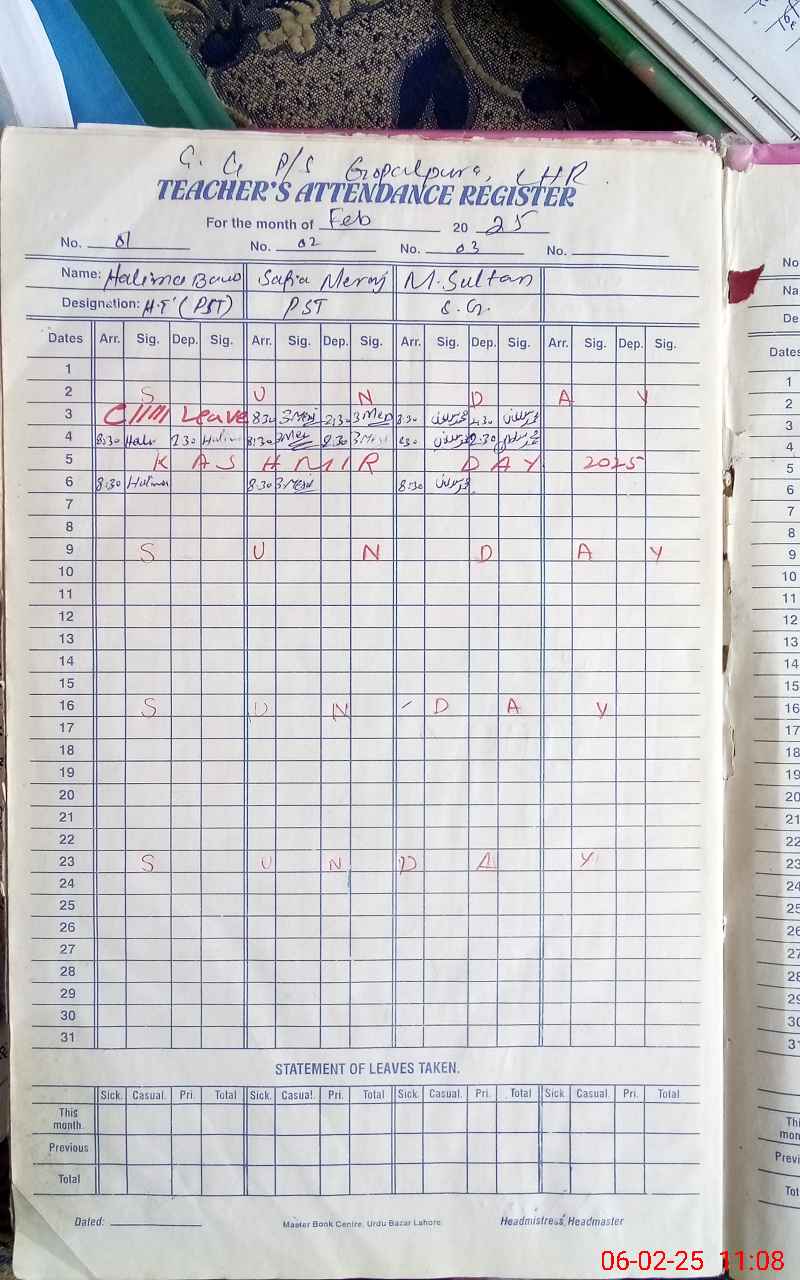 G. G P/S Gopalpura, LHR.
TEACHER'S ATTENDANCE REGISTER
For the month of Feb 2025
No. 01 No. 02 No. 03 No.
Name: Halima Bano Safia Meraj M. Sultan
Designation: H.T (PST) PST S.G.
Dates Arr. Sig. Dep. Sig. Arr. Sig. Dep. Sig. Arr. Sig. Dep. Sig. Arr. Sig. Dep. Sig.
1
2 S U N D A Y
3 Leave 8:30 S Meraj 2:30 S Mer 8:30 2:30
4 8:30 Hali 2:30 Halim 8:30 S Mer 2:30 S Mer 8:30 2:30
5 K A S H M I R D A Y 2025
6 8:30 Halima 8:30 S Meraj 8:30
7
8
9 S U N D A Y
10
11
12
13
14
15
16 S U N D A Y
17
18
19
20
21
22
23 S U N D A Y
24
25
26
27
28
29
30
31
STATEMENT OF LEAVES TAKEN.
Sick. Casual. Pri. Total Sick. Casual. Pri. Total Sick. Casual. Pri. Total Sick. Casual. Pri. Total
This month.
Previous
Total
Dated: Master Book Centre, Urdu Bazar Lahore. Headmistress/Headmaster
No
Na
De
Dates
1
2
3
4
5
6
7
8
9
10
11
12
13
14
15
16
17
18
19
20
21
22
23
24
25
26
27
28
29
30
06-02-25 11:08